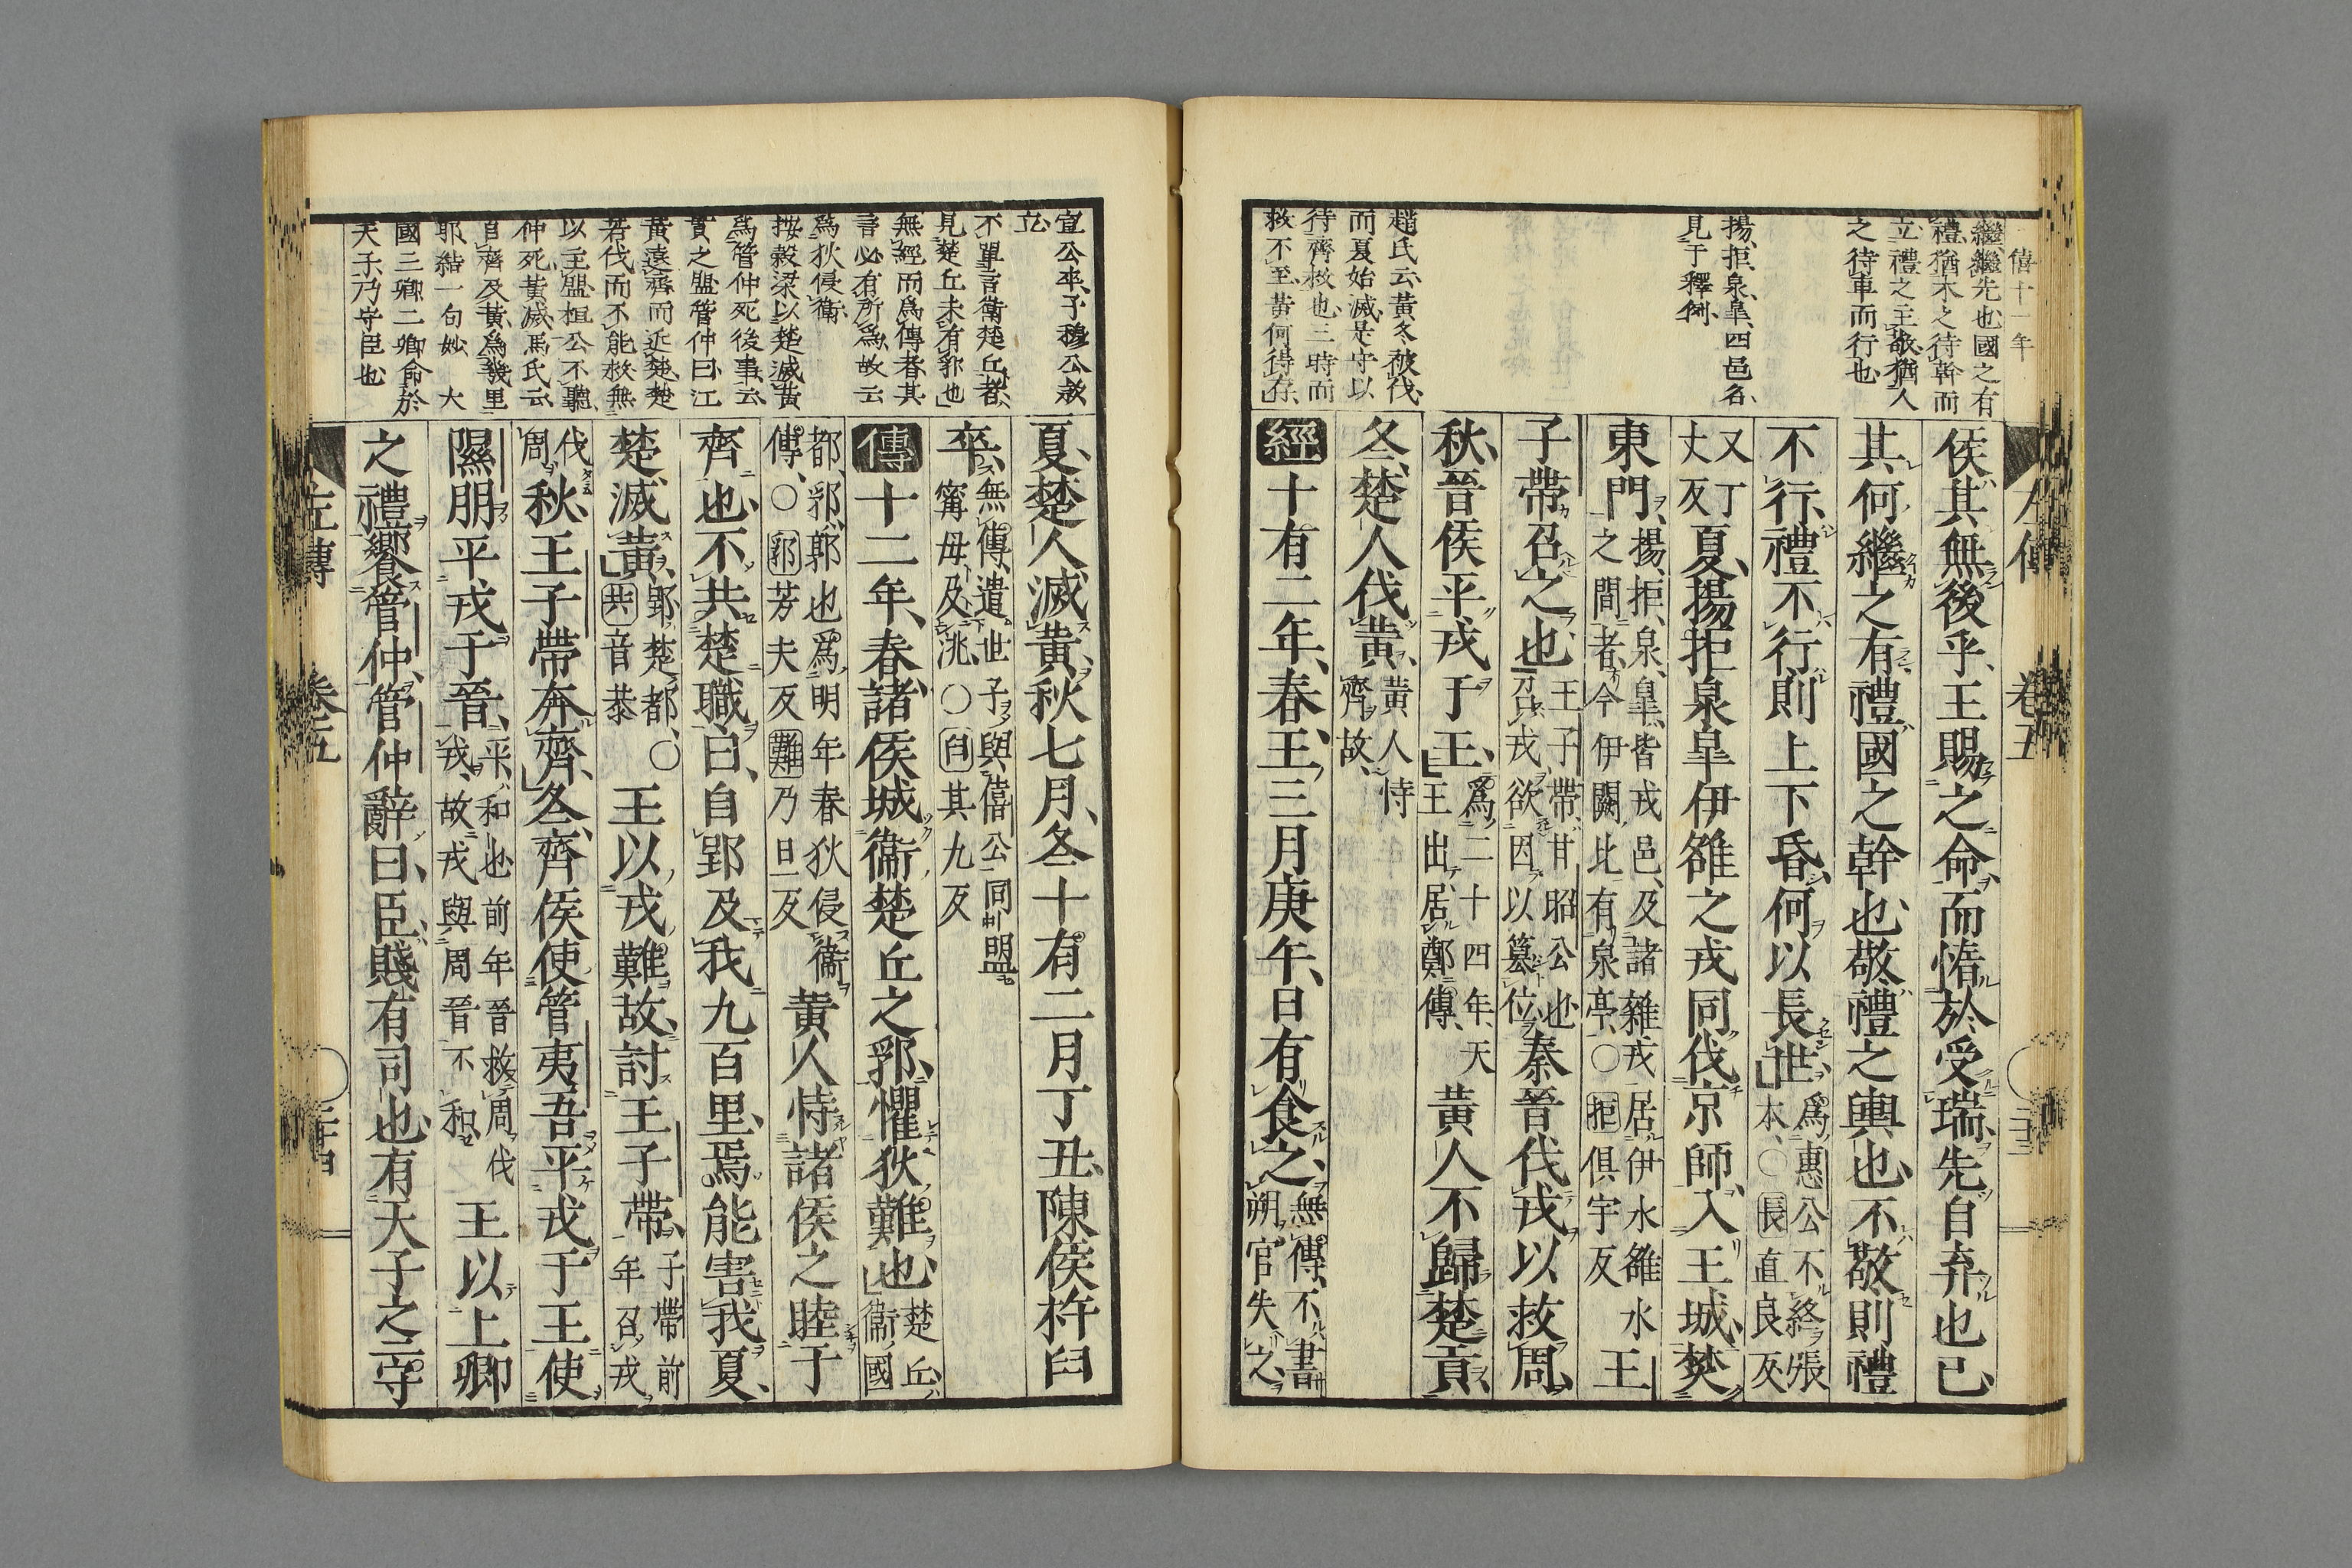 僖十一年
繼、繼先也國之有
禮、猶木之待幹而
立、禮之主敬、猶人
之待車而行也
揚、拒、泉、皐、四邑名、
見于釋例、
趙氏云、黃冬被伐、
而夏始滅、是守以
待齊救也、三時而
救不至、黃何得存、
左傳 卷五
侯其無後乎、王賜之命、而惰於受瑞、先自弃也已、
其何繼之有、禮、國之幹也、敬、禮之輿也、不敬則禮
不行、禮不行則上下昏、何以長世、爲惠公不終張本、〇長直良反
又丁丈反夏、揚拒泉皐伊雒之戎同伐京師、入王城、焚
東門、揚、拒、泉、皐、皆戎邑、及諸雜戎居伊水雒水之間者、今伊闕北有泉亭、〇拒俱宇反王
子帶召之也、王子帶、甘昭公也召戎欲因以簒位、秦晉伐戎以救周、
秋、晉侯平戎于王、爲二十四年、天王出居鄭傳、黃人不歸楚貢、
冬、楚人伐黃、黃人恃齊故、
經十有二年、春、王三月庚午、日有食之、無傳、不書朔、官失之、
宜公卒、子穆公款
立、
不單言衛楚丘者、
見楚丘未有郛也
無經而爲傳者、其
言必有所爲、故云
爲狄侵衛
按穀梁以楚滅黃
爲管仲死後事云、
貫之盟、管仲曰、江
黃遠齊而近楚、楚
若伐而不能救、無
以主盟、桓公不聽、
仲死、黃滅、馮氏云、
自齊及黃、爲幾里
耶、結一句妙、 大
國三卿二卿命於
天子、乃守臣也
夏、楚人滅黃、秋七月、冬十有二月丁丑、陳侯杵臼
卒、無傳、遣世子與僖公同盟甯母及洮、〇臼其九反
傳十二年、春、諸侯城衛楚丘之郛、懼狄難也、楚丘、衛國
都、郛、郭也爲明年春狄侵衛傳、〇郛芳夫反難乃旦反黃人恃諸侯之睦于
齊也、不共楚職、曰、自郢及我九百里、焉能害我、夏、
楚滅黃、郢、楚都、〇共音恭王以戎難故、討王子帶、子帶前年召戎
伐周、秋、王子帶奔齊、冬、齊侯使管夷吾平戎于王、使
隰朋平戎于晉、平、和也前年晉救周伐戎、故戎與周晉不和、王以上卿
之禮饗管仲、管仲辭曰、臣賤有司也、有天子之二守
左傳 卷五 二十四